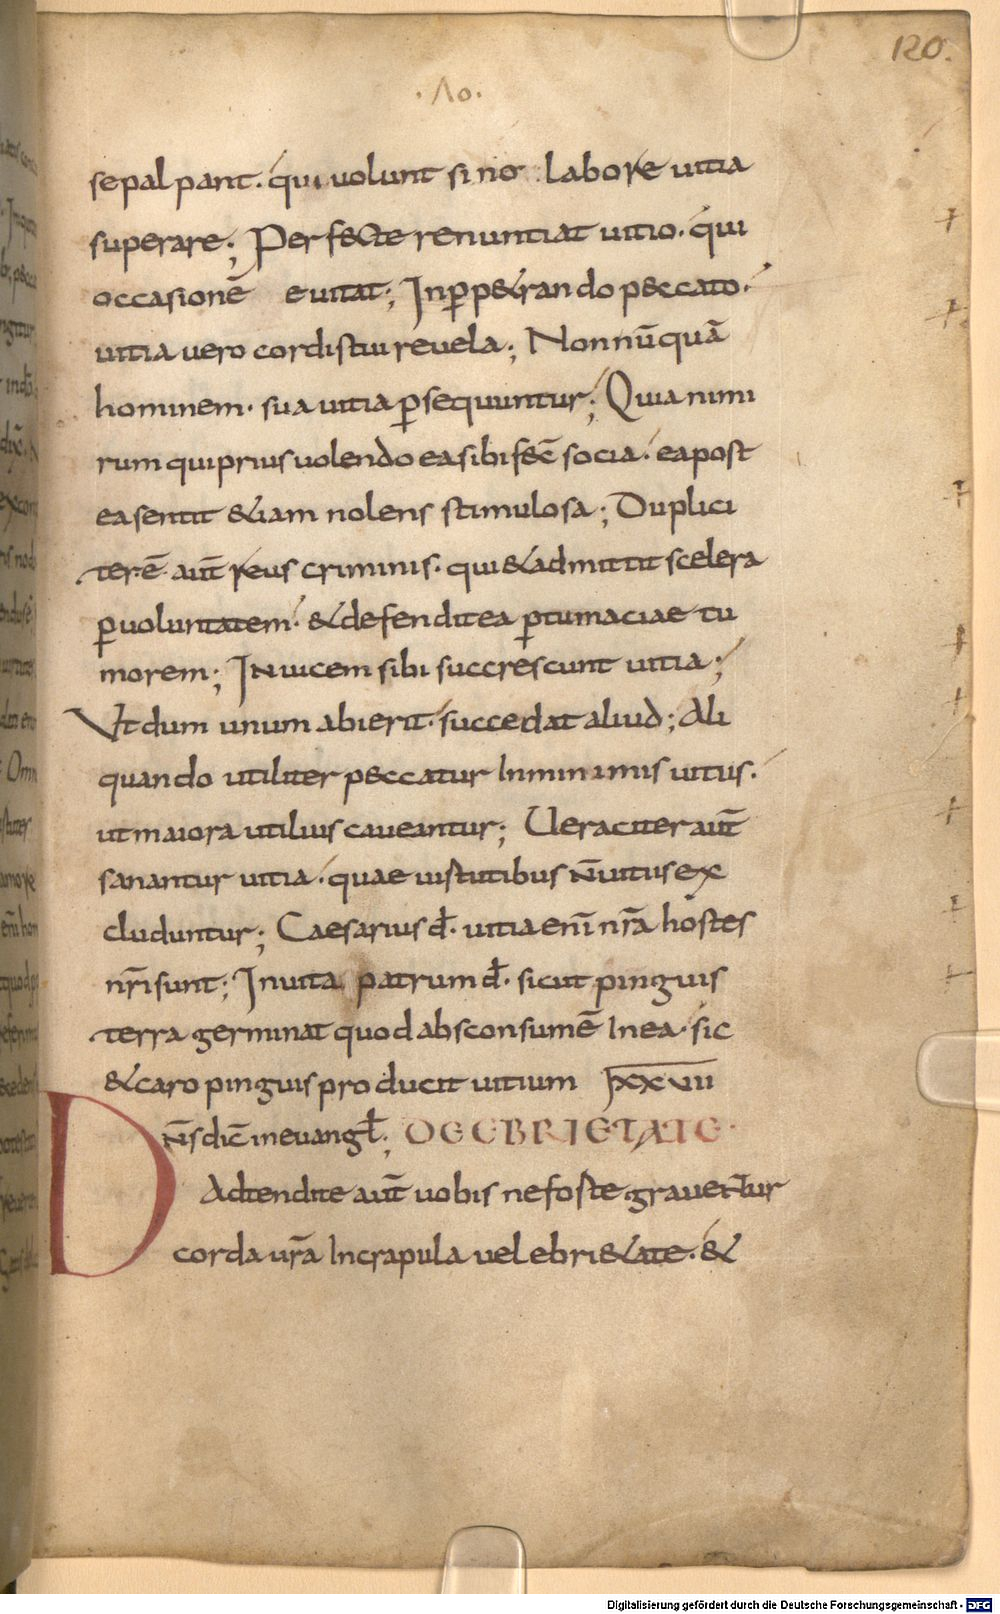 120.
·Λo·
se palpant. qui volunt sine labore uitia
superare; Perfecte renuntiat uitio. qui
occasionē euitat; In ꝑpetrando peccato.
uitia uero cordis tui reuela; Nonnūquā
hominem. sua uitia ꝑsequuntur; Quia nimi
rum qui prius uolendo ea sibi fec̄ socia. ea post
ea sentit &iam nolens stimulosa; Duplici
ter .ē. aut̄ reus criminis. qui & admittit scelera
ꝑ uoluntatem. & defendit ea ꝑtumaciae tu
morem; Inuicem sibi succrescunt uitia;
Ut dum unum abierit. succedat aliud; Ali
quando utiliter peccatur In minimis uitiis.
ut maiora utilius caueantur; Ueraciter aut̄
sanantur uitia. quae uirtutibus n̄ uitiis ex
cluduntur; Caesarius d̄. uitia enī nr̄a hostes
nr̄i sunt; In uita patrum d̄. sicut pinguis
terra germinat quod absconsumē In ea. sic
& caro pinguis producit uitium LXXVII
Dn̄s dic̄ in euangl̄; DE EBRIETATE.
Adtendite aut̄ uobis ne forte grauentur
corda ur̄a In crapula uel ebri&ate. &
Digitalisierung gefördert durch die Deutsche Forschungsgemeinschaft - DFG